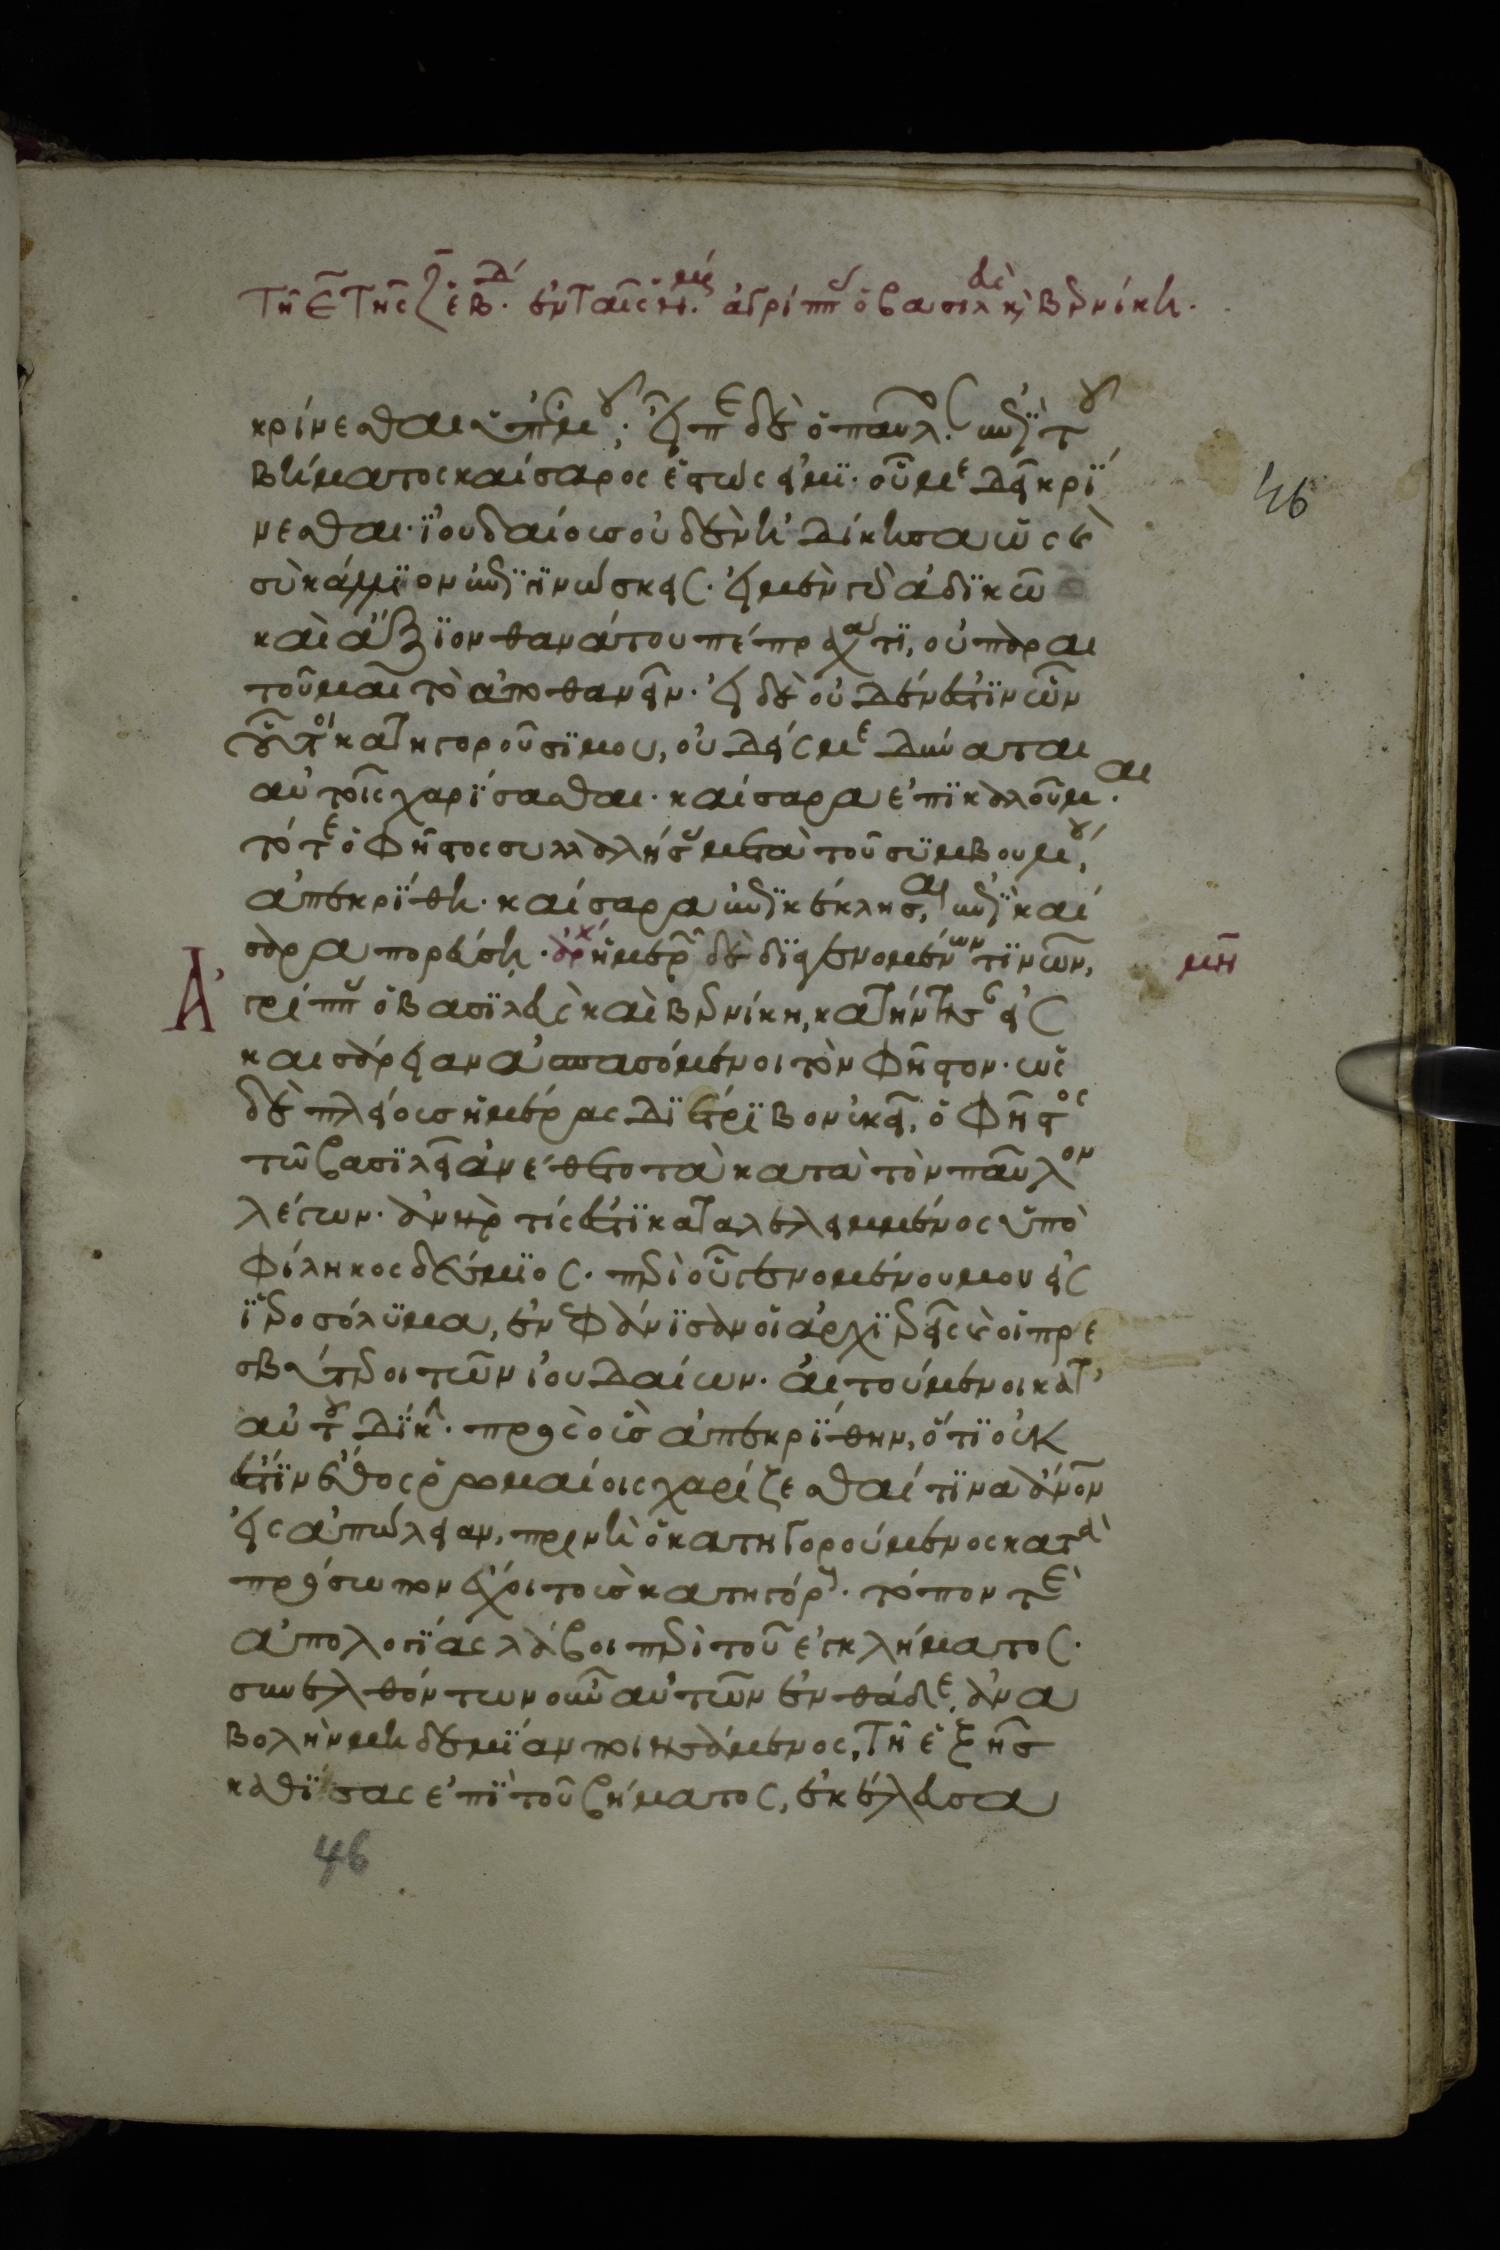 Τῆ ε̄ τῆς ζ̄ ἑβδ. ἐν ταῖς ἡμ. ἀγρίππ ὁ βασιλεὺς κ Βερνίκη.
κρίνεσθαι ἐπ' ἐμοῦ; εἶπε δὲ ὁ παῦλος. ἐπὶ τοῦ
βήματος καίσαρος ἑστώς εἰμι. οὗ με δεῖ κρί
νεσθαι. ἰουδαίοις οὐδὲν ἠδίκησα ὡς καὶ
σὺ κάλλιον ἐπιγινώσκεις. εἰ μὲν γὰρ ἀδικῶ
καὶ ἄξιον θανάτου πέπραχά τι, οὐ παραι
τοῦμαι τὸ ἀποθανεῖν. εἰ δὲ οὐδέν ἐστιν ὧν
οὗτοι κατηγοροῦσί μου, οὐδείς με δύναται
αὐτοῖς χαρίσασθαι. καίσαρα ἐπικαλοῦμαι.
τότε ὁ Φῆστος συλλαλήσας μετὰ τοῦ συμβουλίου,
ἀπεκρίθη. καίσαρα ἐπικέκλησαι, ἐπὶ καί
σαρα πορεύση. ἀρχ ἡμερῶν δὲ διαγενομένων τινῶν,
46
μη
Ἀγρίππας ὁ βασιλεὺς καὶ Βερνίκη, κατήντησαν εἰς
καισάρειαν ἀσπασόμενοι τὸν Φῆστον. ὡς
δὲ πλείους ἡμέρας διέτριβον ἐκεῖ, ὁ Φῆστος
τῶ βασιλεῖ ἀνέθετο τὰ κατὰ τὸν παῦλον
λέγων. ἀνήρ τίς ἐστι καταλελειμμένος ὑπὸ
Φίληκος δέσμιος. περὶ οὗ γενομένου μου εἰς
ἱεροσόλυμα, ἐνεφάνισαν οἱ ἀρχιερεῖς καὶ οἱ πρε
σβύτεροι τῶν ἰουδαίων. αἰτούμενοι κατ'
αὐτοῦ δίκην. πρὸς οὓς ἀπεκρίθην, ὅτι οὐκ
ἔστιν ἔθος ῥωμαίοις χαρίζεσθαί τινα ἄνον
εἰς ἀπώλειαν, πρινὴ ὁ κατηγορούμενος κατὰ
πρόσωπον ἔχοι τοὺς κατηγόρους. τόπον τε
ἀπολογίας λάβοι περὶ τοῦ ἐγκλήματος.
συνελθόντων οὖν αὐτῶν ἐνθάδε, ἀνα
βολὴν μηδεμίαν ποιησάμενος, τῆ ἑξῆς
καθίσας ἐπὶ τοῦ βήματος, ἐκέλευσα
46